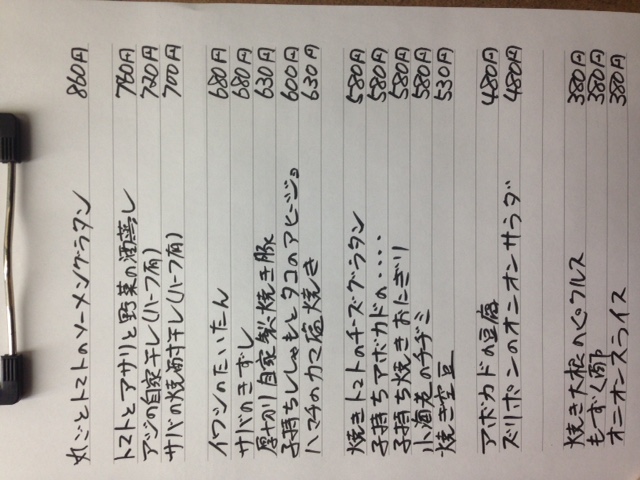 丸ごとトマトのソーメングラタン 860円
トマトとアサリと野菜の酒蒸し 760円
アジの自家干し(ハーフ有) 720円
サバの焼めザ干し(ハーフ有) 700円
イワシのたいたん 680円
サバのきずし 680円
厚切り自家製焼き豚 630円
子持ちししゃもとタコのアヒージョ 600円
ハマチのカマ塩焼き 630円
焼きトマトのチーズグラタン 580円
子持ちアボカドの・・・・ 580円
子持ち焼きおにぎり 580円
小海老のチヂミ 580円
焼き空豆 530円
アボカドの豆腐 480円
ズリポンのオニオンサラダ 480円
焼き大根のピクルス 380円
もずく酢 380円
オニオンスライス 380円